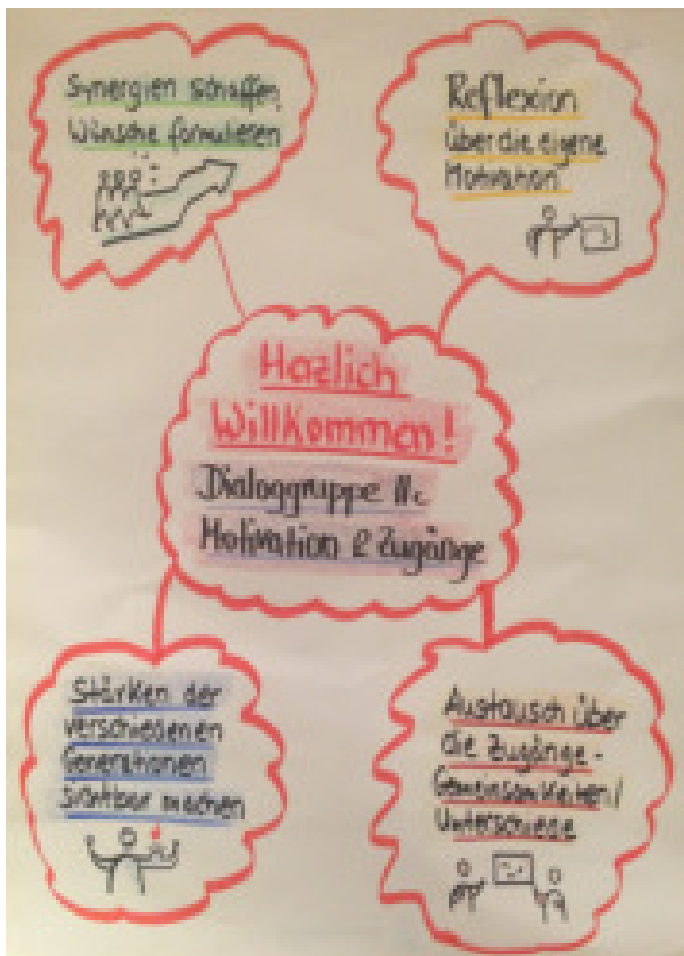 Synergien schaffen
Wünsche formulieren
Reflexion
über die eigene
Motivation
Herzlich
Willkommen!
Dialoggruppe
Motivation & Zugänge
Stärken der
verschiedenen
Generationen
sichtbar machen
Austausch über
die Zugänge -
Gemeinsamkeiten/
Unterschiede